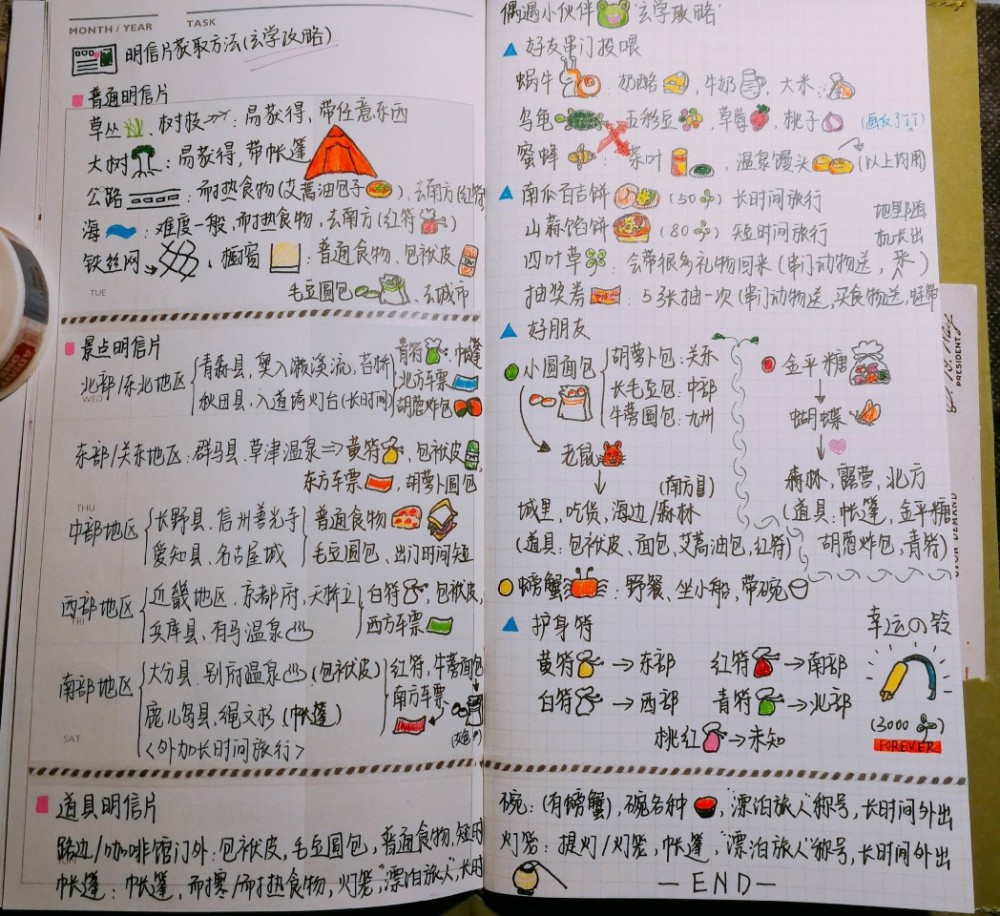 MONTH / YEAR TASK
明信片获取方法(玄学攻略)
普通明信片
草丛、树枝：易获得，带任意东西
大树：易获得，带帐篷
公路：耐热食物(艾蒿油包子)、去南方(红符)
海：难度一般，耐热食物，去南方(红符)
铁丝网、橱窗：普通食物、包袱皮
毛豆圆包、去城市
TUE
景点明信片
北部/东北地区
青森县，奥入濑溪流，苔桥
秋田县，入道崎灯台(长时间)
青符 帐篷
北方车票
胡葱炸包
WED
东部/关东地区：群马县，草津温泉⇒黄符，包袱皮
东方车票，胡萝卜圆包
THU
中部地区
长野县，信州善光寺
爱知县，名古屋城
普通食物
毛豆圆包、出门时间短
西部地区
FRI
近畿地区，京都府，天桥立
兵库县，有马温泉
白符，包袱皮，
西方车票
南部地区
大分县，别府温泉(包袱皮)
鹿儿岛县，绳文杉(帐篷)
<外加长时间旅行>
红符，牛蒡面包
南方车票
SAT
道具明信片
路边/咖啡馆门外：包袱皮，毛豆圆包，普通食物，短时
帐篷：帐篷，耐寒/耐热食物，灯笼，"漂泊旅人"，长时
偶遇小伙伴"玄学攻略"
好友串门投喂
蜗牛：奶酪，牛奶，大米
乌龟：五彩豆，草莓，桃子
蜜蜂：菜叶，温泉馒头(以上均用)
南瓜百吉饼(50)长时间旅行
山蒜馅饼(80)短时间旅行
四叶草：会带很多礼物回来(串门动物送，采)
地里随机长出
抽奖券：5张抽一次(串门动物送，买食物送，蛙带
好朋友
小圆面包
胡萝卜包：关东
长毛豆包：中部
牛蒡圆包：九州
老鼠
(南方)
城里，吃货，海边/森林
(道具：包袱皮、面包，艾蒿油包，红符)
金平糖
蝴蝶
森林，露营，北方
(道具：帐篷，金平糖
胡葱炸包，青符)
螃蟹：野餐、坐小船，带碗
护身符
黄符→东部 红符→南部
白符→西部 青符→北部
桃红→未知
幸运の铃
(3000)
FOREVER
碗：(有螃蟹)，碗各种，"漂泊旅人"称号，长时间外出
灯笼：提灯/灯笼，帐篷，"漂泊旅人"称号，长时间外出
—END—
PRESIDENT